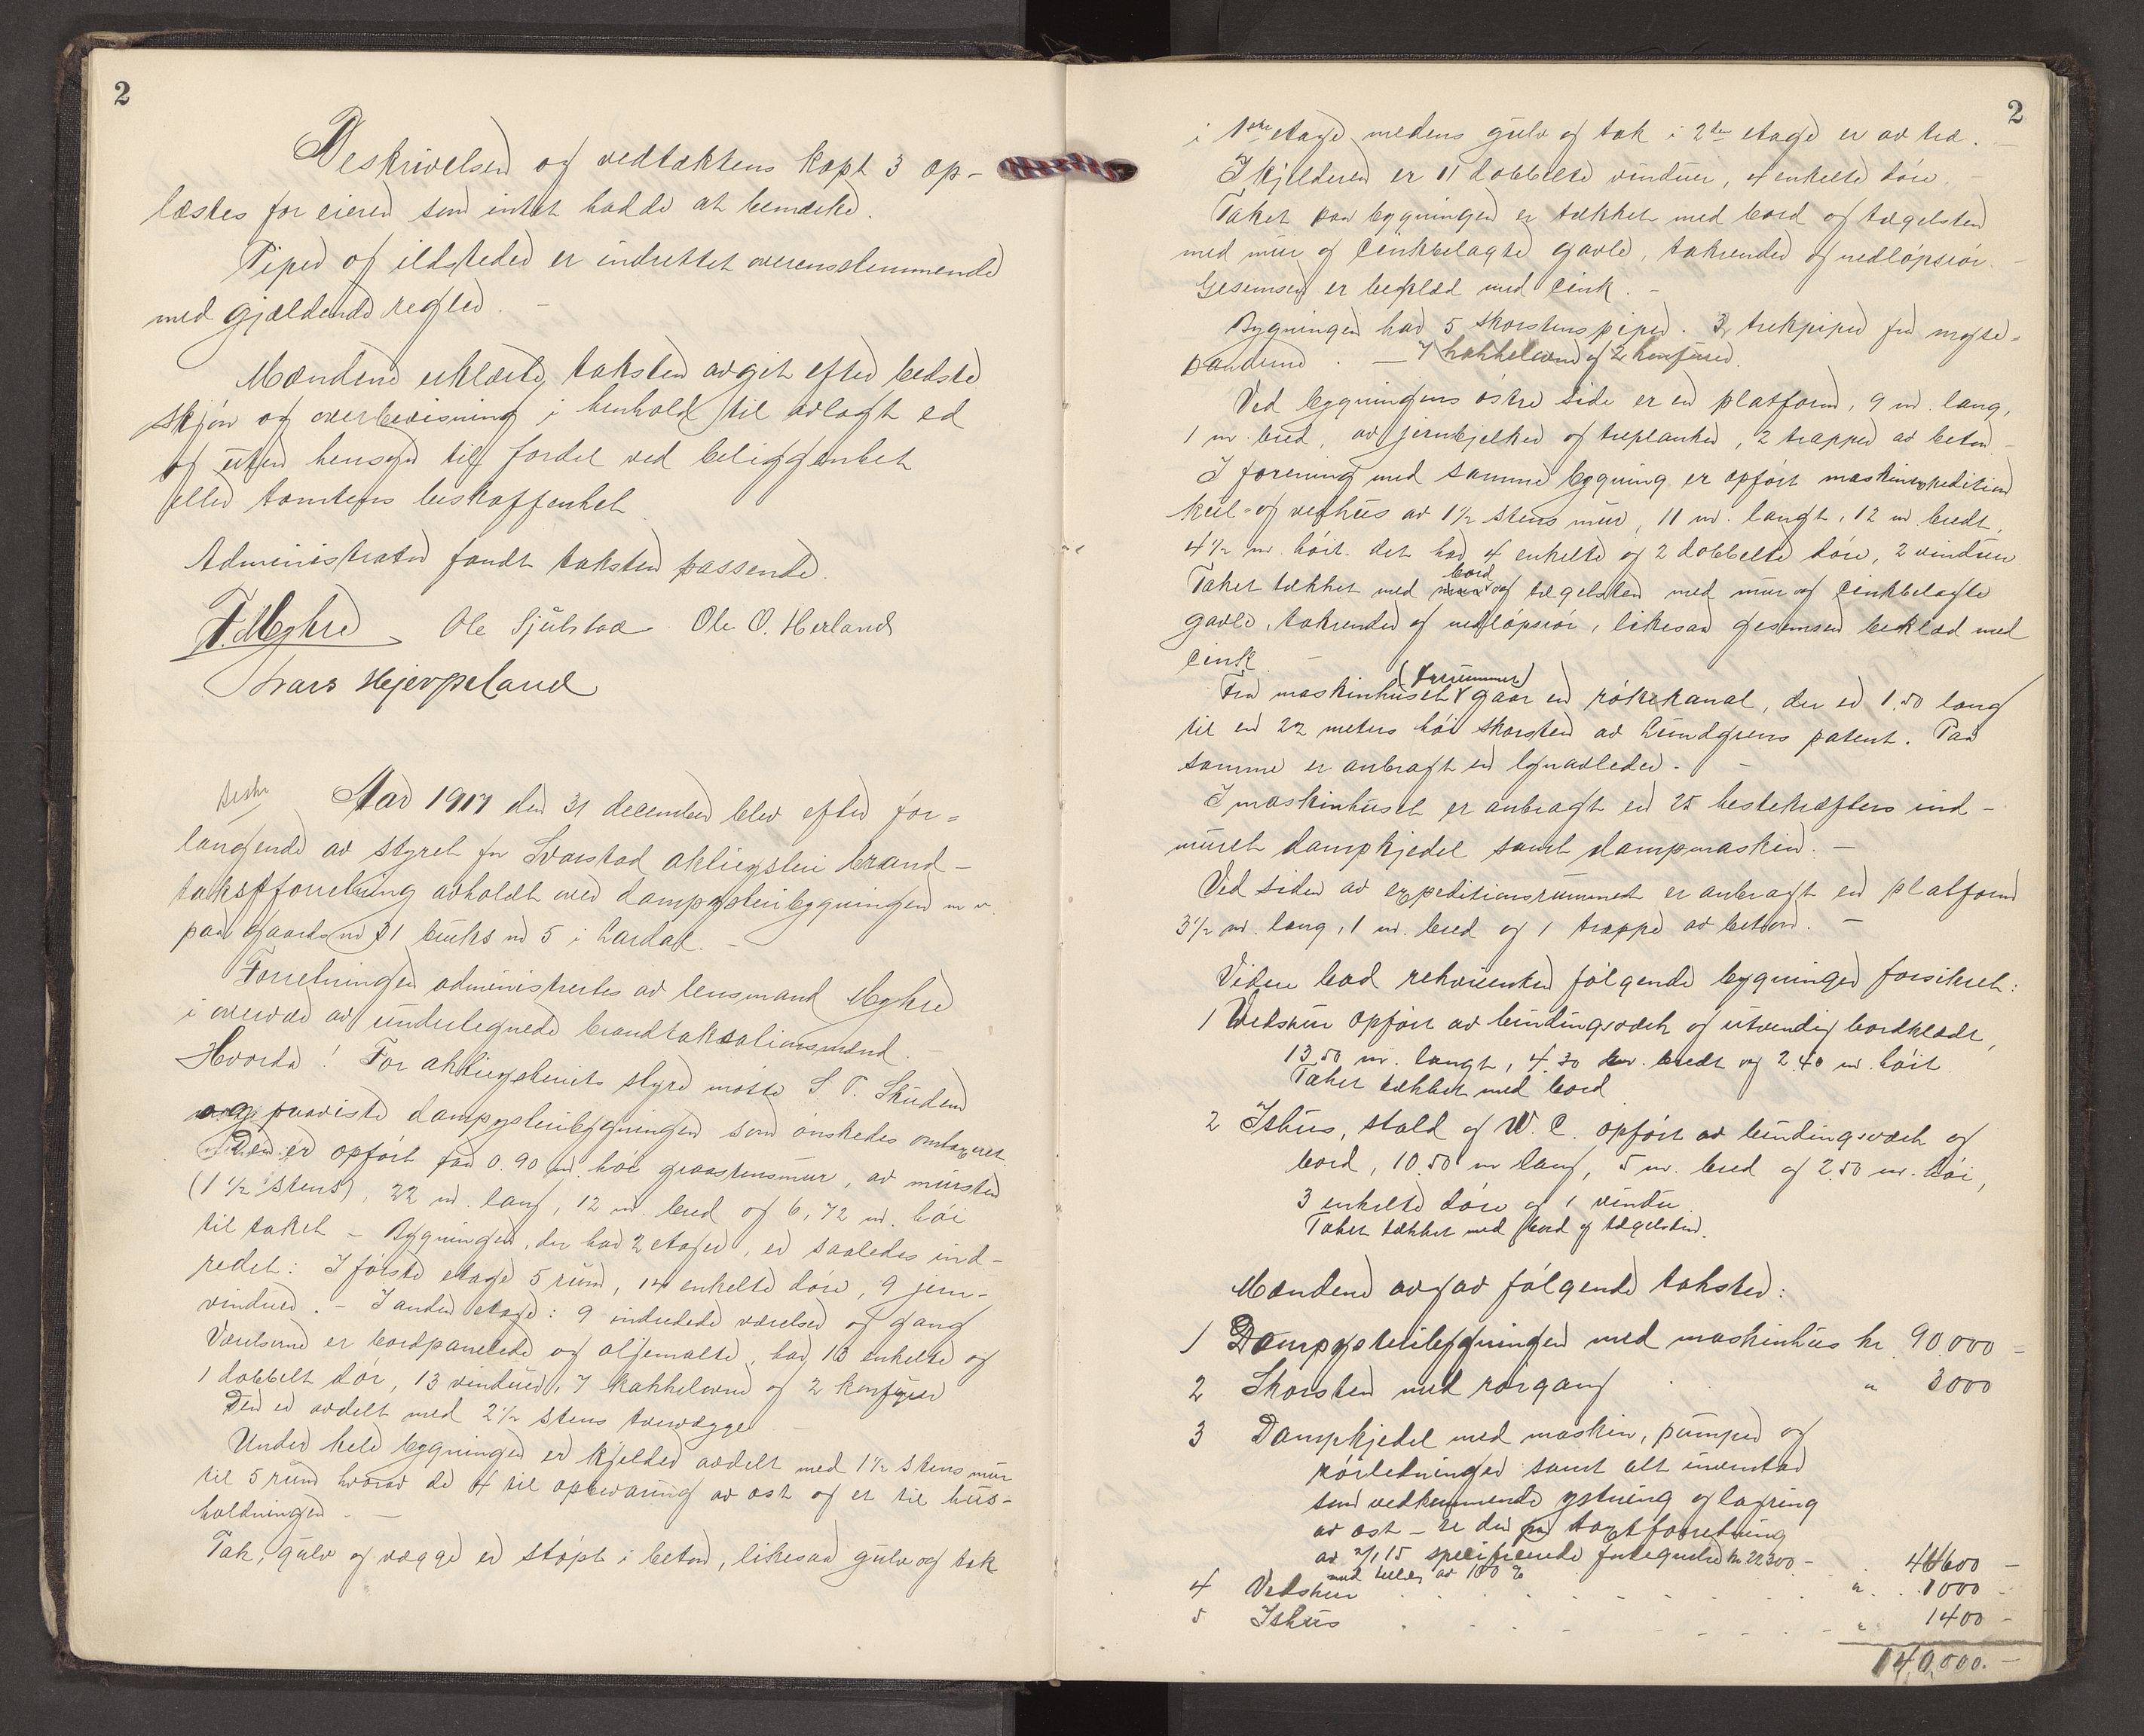 2
Beskrivelsen og vedtektens kapt 3 op-
læstes for eieren som intet hadde at bemerke.
Piper og ildsteder er indrettet overensstemmende
med gjældende regler. -
Mændene erklærte, taksten avgit efter bedste
skjøn og overbevisning i henhold til avlagt ed
og uten hensyn til fordel ved beliggenhet
eller tomtens beskaffenhet.
Administrator fandt taksten passende.
F. Myhre Ole Sjulstad Ole O. Herland
Lars Hjerpeland
Aar 1917 den 31 december blev efter for-
langende av styret for Svarstad aktieysteri brand-
takstforretning avholdt over dampysteribygningen m v.
paa gaards no 31 bruks no 5 i Lardal. -
Forretningen administrertes av lensmand Myhre
i overvær av undertegnede brandtaksationsmænd. -
Hvorda! For aktieysteriets styre møtte S. T. Skuden
og paaviste dampysteribygningen som ønskedes omtaxeret.
Den er opført paa 0.90 m. høi graastensmur, av mursten
(1 1/2 stens), 22 m. lang, 12 m. bred og 6,72 m. høi
til taket - Bygningen, der har 2 etager, er saaledes ind-
redet: I første etage 5 rum, 14 enkelte døre, 9 jern-
vinduer. - I anden etage: 9 indredede værelser og gang
Værelserne er bordpanelede og oljemalte, har 13 enkelte og
1 dobbelt dør, 13 vinduer, 7 kakkelovne og 2 komfyrer
Den er avdelt med 2 1/2 stens tvervægge
Under hele bygningen er kjelder avdelt med 1 1/2 stens mur
til 5 rum hvorav de 4 til opbevaring av ost og et til hus-
holdningen. -
Tak, gulv og vægge er støpt i beton, likesaa gulv og tak
2
i 1ste etage, medens gulv og tak i 2den etage er av træ. -
I kjelderen er 11 dobbelte vinduer, 4 enkelte døre. -
Taket paa bygningen er tækket med bord og tægelsten
med mur og cinkbelagte gavle, takrender og nedløpsrør. -
Gesemsen er beklæd med cink. -
Bygningen har 5 skorstenspiper. 3 trekpiper fra myse-
panderne. - 7 kakkelovne og 2 komfurer.
Ved bygningens østre side er en platform, 9 m. lang,
1 m. bred, av jernbjelker og treplanker, 2 trapper av beton -
I forening med samme bygning er opført maskinexpedition
kul- og vedhus av 1 1/2 stens mur, 11 m. langt, 12 m bredt,
4 1/2 m. høit. det har 4 enkelte og 2 dobbelte døre, 2 vinduer
Taket tækket med bord og tægelsten med mur og cinkbelagte
gavle, takrender og nedløpsrør, likesaa gesemsen beklæd med
cink. -
Fra maskinhuset (fyrrummet) gaar en røkekanal, der er 1.50 lang
til en 22 meters høi skorsten av Lundgrens patent. Paa
samme er anbragt en lynavleder. -
I maskinhuset er anbragt en 25 hestekræfters ind-
muret dampkjedel samt dampmaskin. -
Ved siden av expeditionsrummet er anbragt en platform
3 1/2 m. lang, 1 m. bred og 1 trappe av beton. -
Videre bad rekvirenten følgende bygninger forsikret:
1 Vedskur opført av bindingsverk og utvendig bordklædt,
13.50 m. langt, 4.30 m. bredt og 2.40 m. høit
Taket tækket med bord
2 Ishus, stald og W. C. opført av bindingsverk og
bord, 10.50 m lang, 5 m. bred og 2.50 m. høi,
3 enkelte døre og 1 vindu
Taket tækket med bord og tægelsten.
Mændene avgav følgende takster:
1 Dampysteribygningen med maskinhus kr. 90.000 -
2 Skorsten med rørgang " 3000
3 Dampkjedel med maskin, pumper og
rørledninger samt alt inventar
som vedkommende ystning og lagring
av ost - se den paa taxtforretning
av 2/1 15 specificerede fortegnelse kr 22300 -
med tillæg av 100 % 44600 -
4 Vedskur " 1000 -
5 Ishus " 1400 -
140,000. -